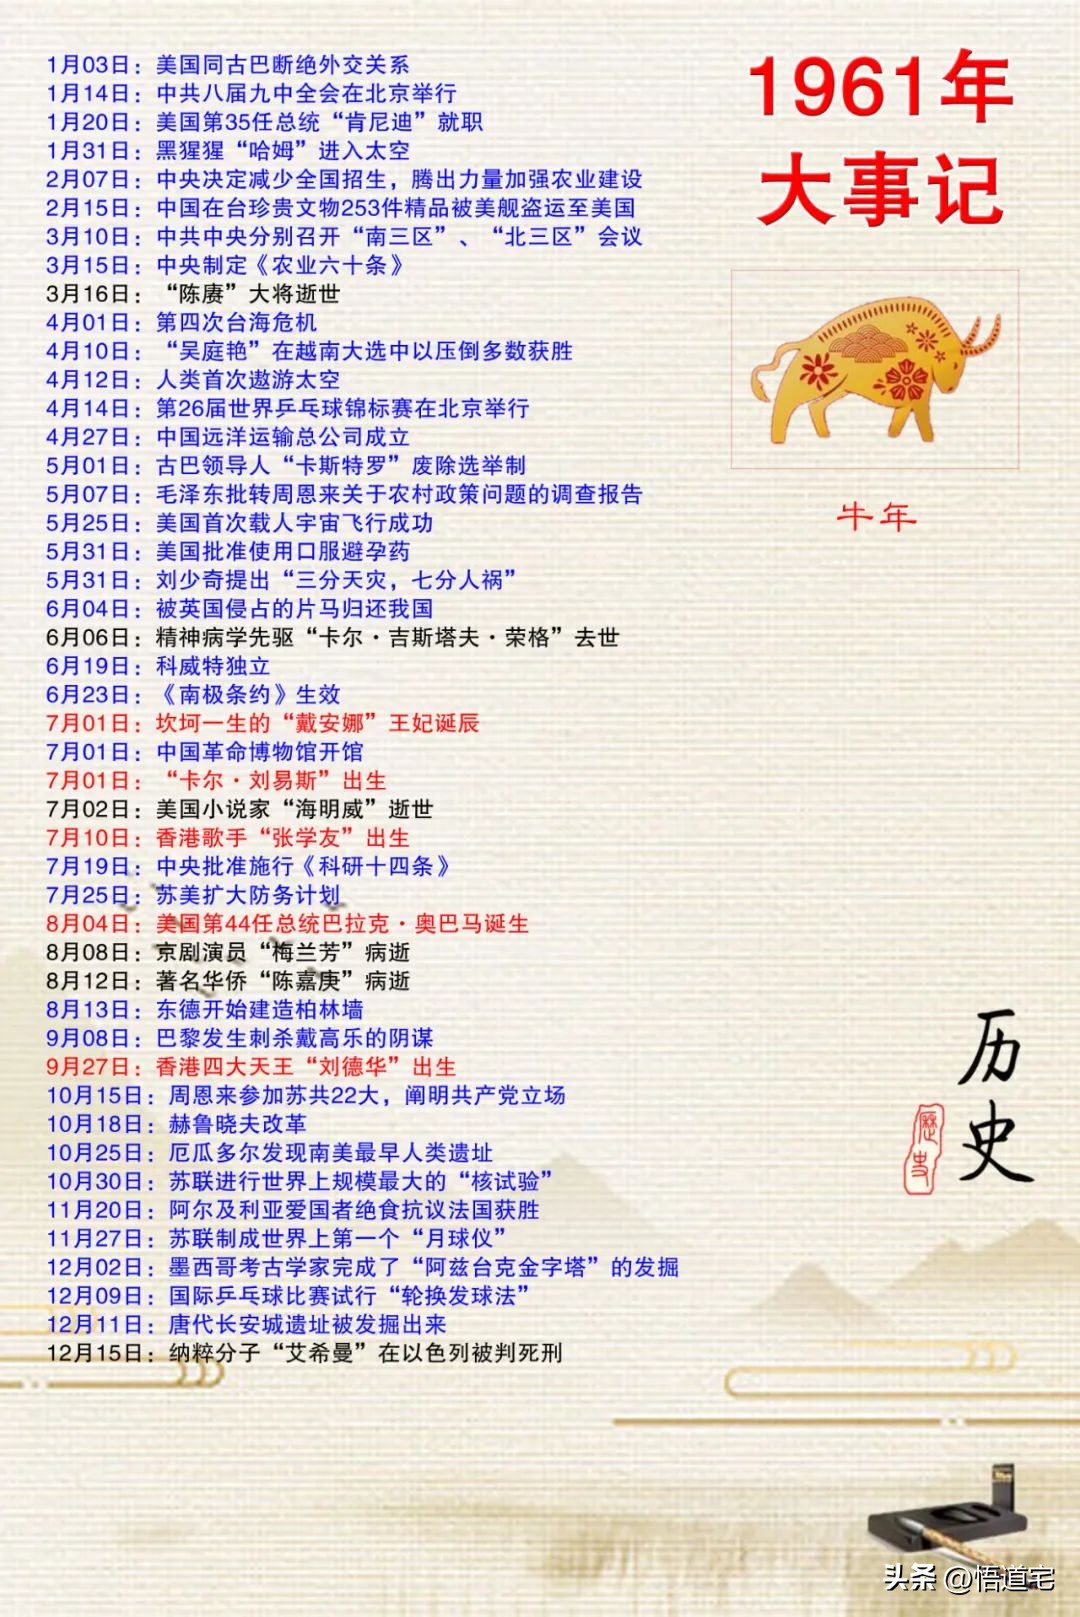 1961年
大事记
1月03日：美国同古巴断绝外交关系
1月14日：中共八届九中全会在北京举行
1月20日：美国第35任总统“肯尼迪”就职
1月31日：黑猩猩“哈姆”进入太空
2月07日：中央决定减少全国招生，腾出力量加强农业建设
2月15日：中国在台珍贵文物253件精品被美舰盗运至美国
3月10日：中共中央分别召开“南三区”、“北三区”会议
3月15日：中央制定《农业六十条》
3月16日：“陈赓”大将逝世
4月01日：第四次台海危机
4月10日：“吴庭艳”在越南大选中以压倒多数获胜
4月12日：人类首次遨游太空
4月14日：第26届世界乒乓球锦标赛在北京举行
4月27日：中国远洋运输总公司成立
5月01日：古巴领导人“卡斯特罗”废除选举制
5月07日：毛泽东批转周恩来关于农村政策问题的调查报告
5月25日：美国首次载人宇宙飞行成功
5月31日：美国批准使用口服避孕药
5月31日：刘少奇提出“三分天灾，七分人祸”
6月04日：被英国侵占的片马归还我国
6月06日：精神病学先驱“卡尔·吉斯塔夫·荣格”去世
6月19日：科威特独立
6月23日：《南极条约》生效
7月01日：坎坷一生的“戴安娜”王妃诞辰
7月01日：中国革命博物馆开馆
7月01日：“卡尔·刘易斯”出生
7月02日：美国小说家“海明威”逝世
7月10日：香港歌手“张学友”出生
7月19日：中央批准施行《科研十四条》
7月25日：苏美扩大防务计划
8月04日：美国第44任总统巴拉克·奥巴马诞生
8月08日：京剧演员“梅兰芳”病逝
8月12日：著名华侨“陈嘉庚”病逝
8月13日：东德开始建造柏林墙
9月08日：巴黎发生刺杀戴高乐的阴谋
9月27日：香港四大天王“刘德华”出生
10月15日：周恩来参加苏共22大，阐明共产党立场
10月18日：赫鲁晓夫改革
10月25日：厄瓜多尔发现南美最早人类遗址
10月30日：苏联进行世界上规模最大的“核试验”
11月20日：阿尔及利亚爱国者绝食抗议法国获胜
11月27日：苏联制成世界上第一个“月球仪”
12月02日：墨西哥考古学家完成了“阿兹台克金字塔”的发掘
12月09日：国际乒乓球比赛试行“轮换发球法”
12月11日：唐代长安城遗址被发掘出来
12月15日：纳粹分子“艾希曼”在以色列被判死刑
牛年
历史
歷史
头条 @悟道宅